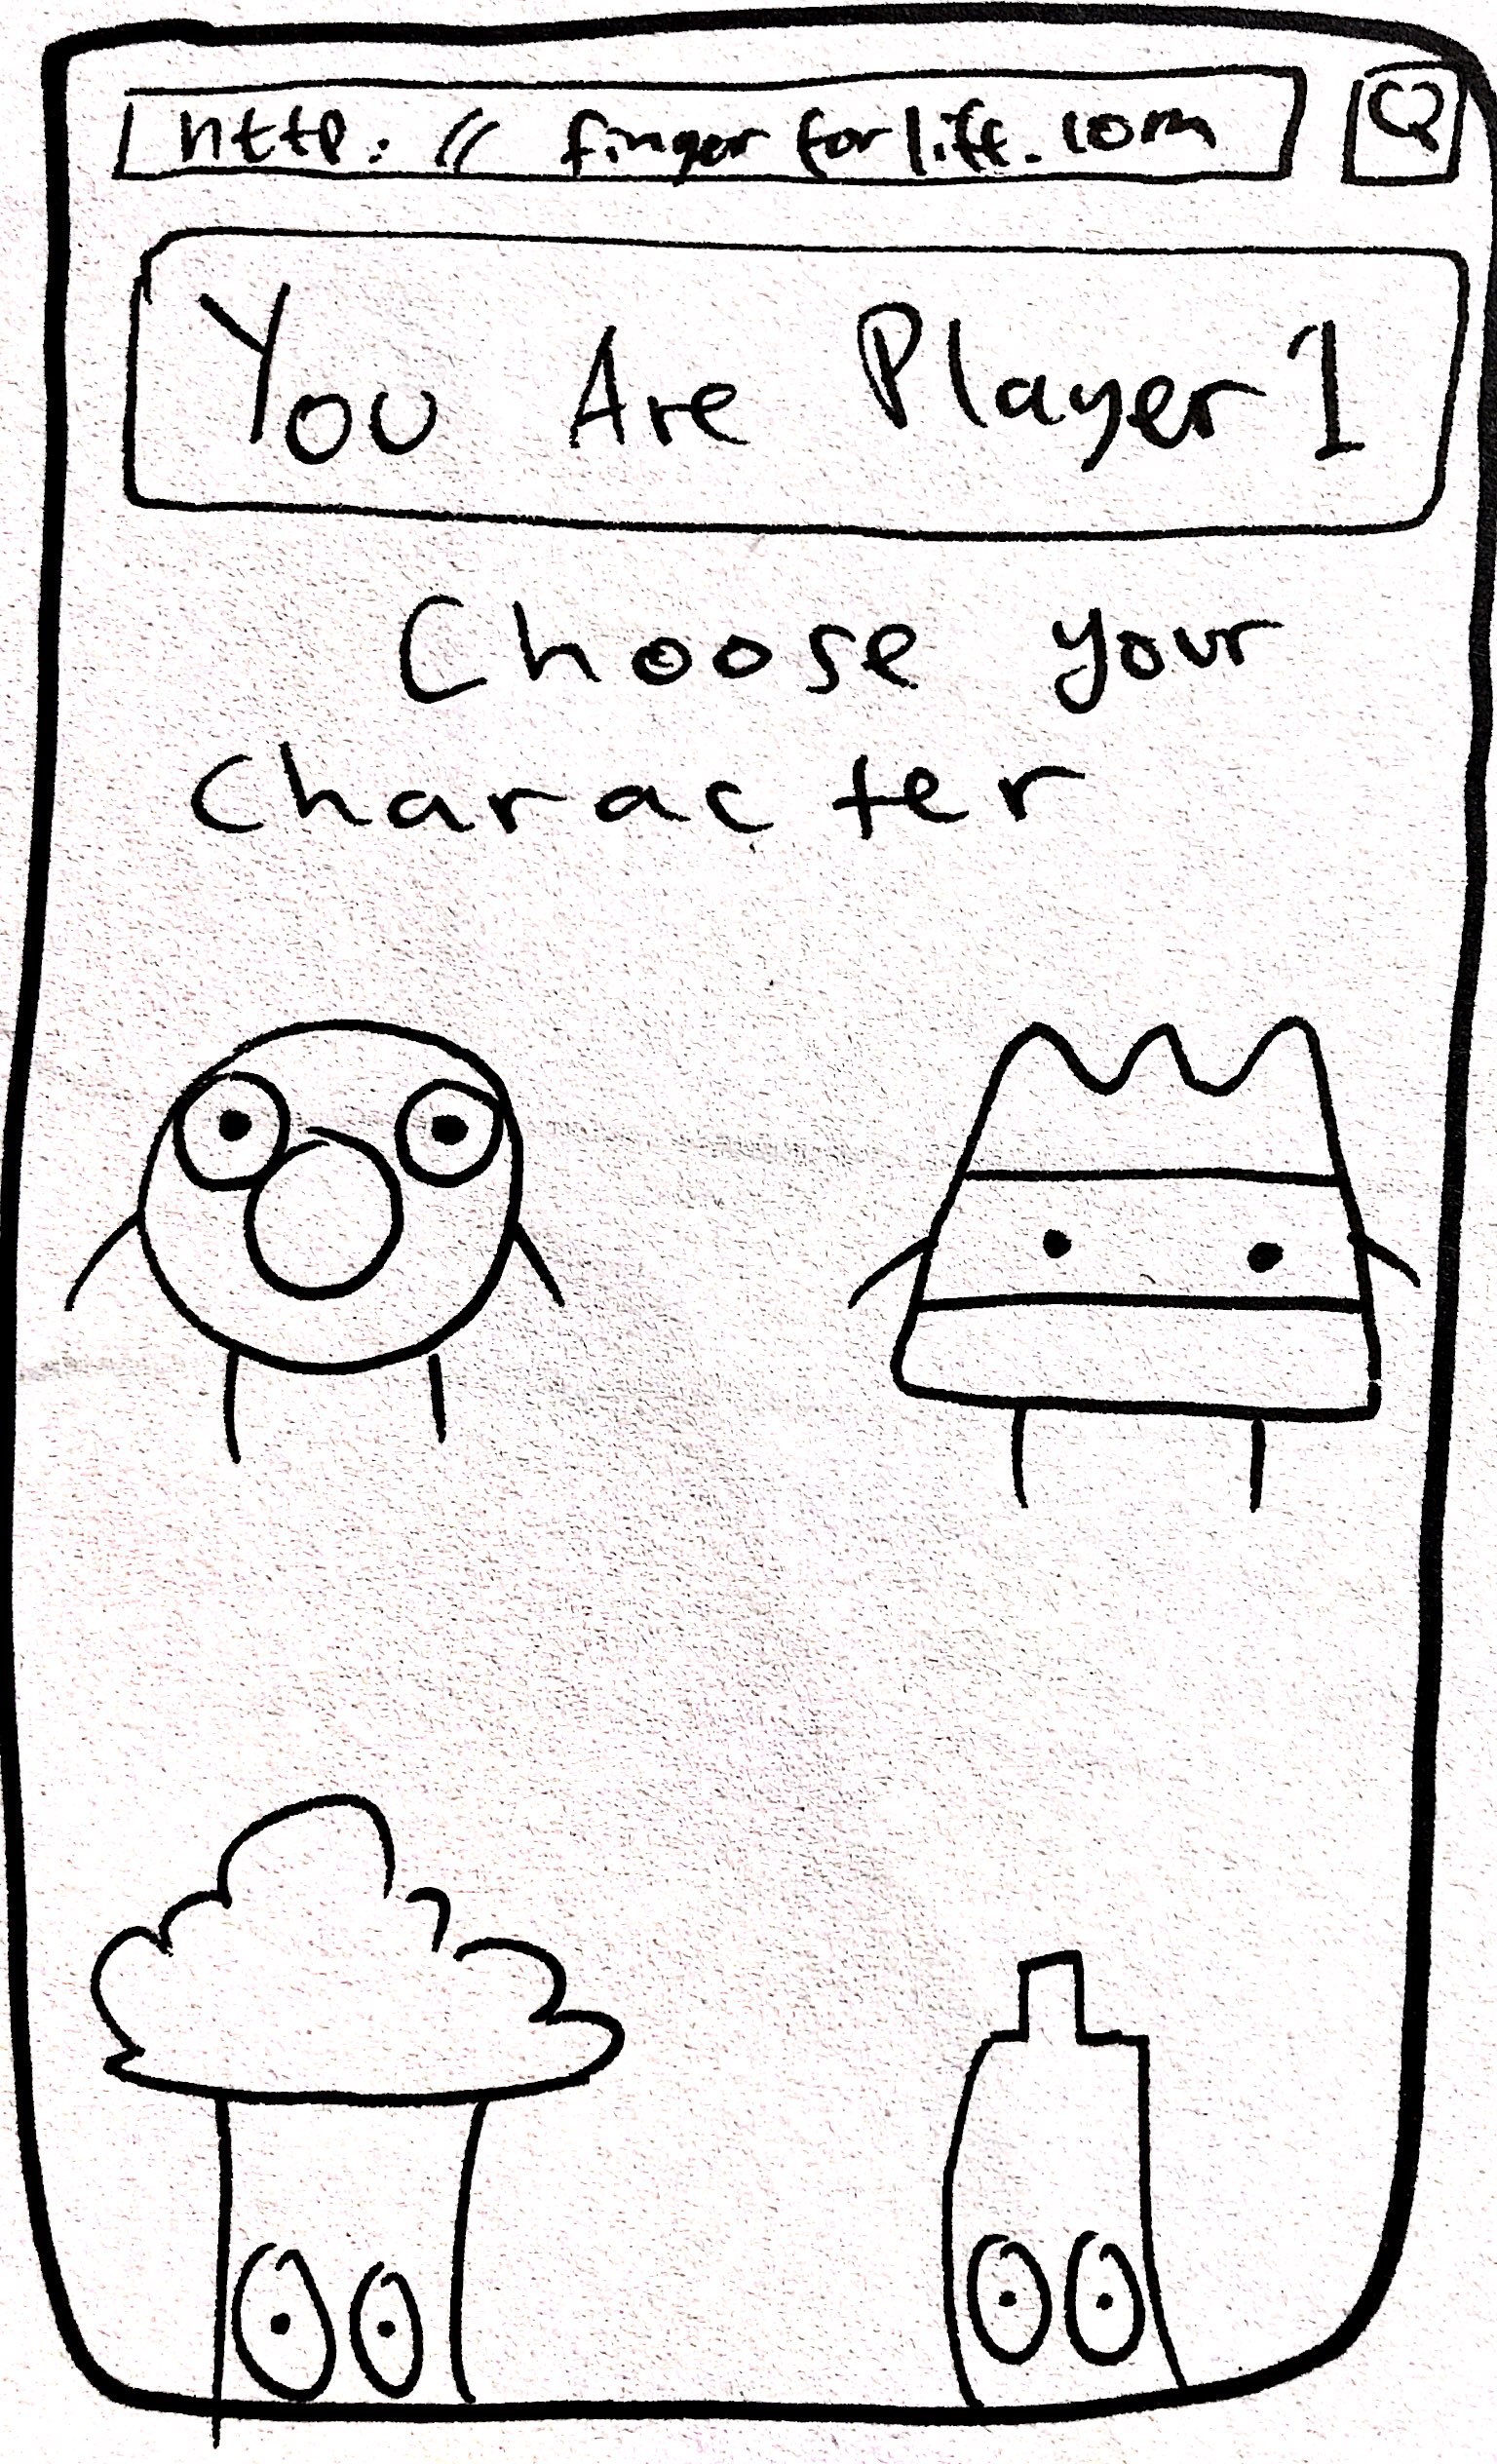 http://fingerforlift.com
You Are Player 1
Choose your
character